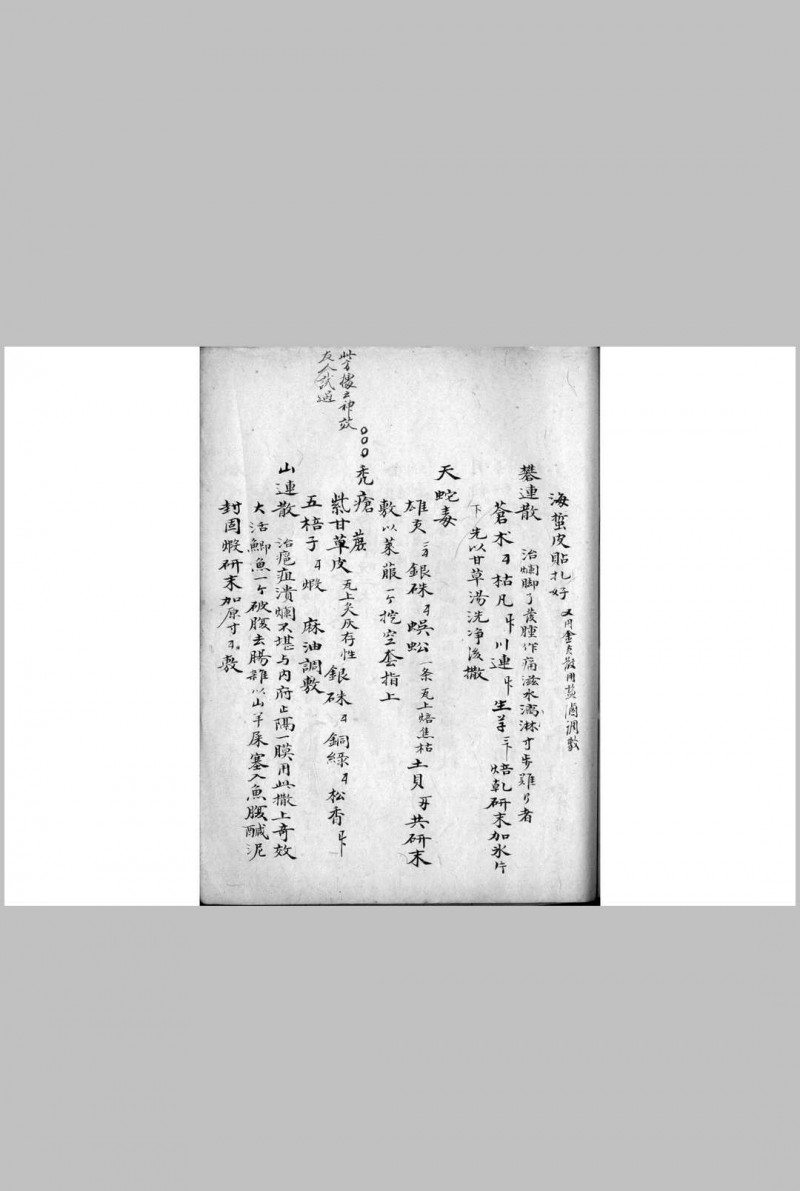 海蜇皮貼扎好 又用金黃散用藍滷調敷
礬連散 治爛脚了發腫作痛滋水漓淋寸步難行者
蒼朮 枯凡 川連 生羊 焙乾研末加氷片
下先以甘草湯洗净後撒
天蛇毒
雄夾 銀硃 蜈蚣一条瓦上焙焦枯 土貝 共研末
敷以萊菔一个挖空套指上
禿瘡
紫甘草皮瓦上炙灰存性 銀硃 銅綠 松香
五棓子 蝦 麻油調敷
山連散 治疽潰爛不堪与內府止隔一膜用此撒上奇效
大活鯽魚一个破腹去腸雜以山羊屎塞入魚腹醎泥
封固煅研末加原寸 敷
此方據云神效
友人試過